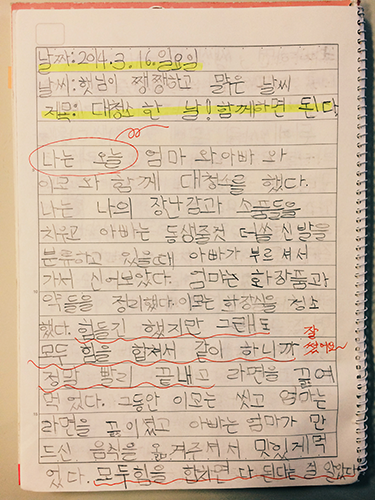 날짜: 2014.3.16.일요일
날씨: 햇님이 쨍쨍하고 맑은 날씨
제목: 대청소 한 날! 함께하면 된다
나는 오늘 엄마 와 아빠 와
이모 와 함께 대청소를 했다.
나는 나의 장난감과 소품들을
치우고 아빠는 동생줄것 더쓸 신발을
분류하고 있을때 아빠가 부르셔서
가서 신어보았다. 엄마는 화장품과
약들을 정리했다. 이모는 화장실을 청소
했다. 힘들긴 했지만 그래도
모두 힘을 합쳐서 같이 하니까
잘 썼어요
정말 빨리 끝내고 라면을 끓여
먹었다. 그동안 이모는 씻고 엄마는
라면을 끓이셨고 아빠는 엄마가 만
드신 음식을 옮겨주셔서 맛있게먹
었다. 모두힘을 합치면 다 된다는 걸 알았다